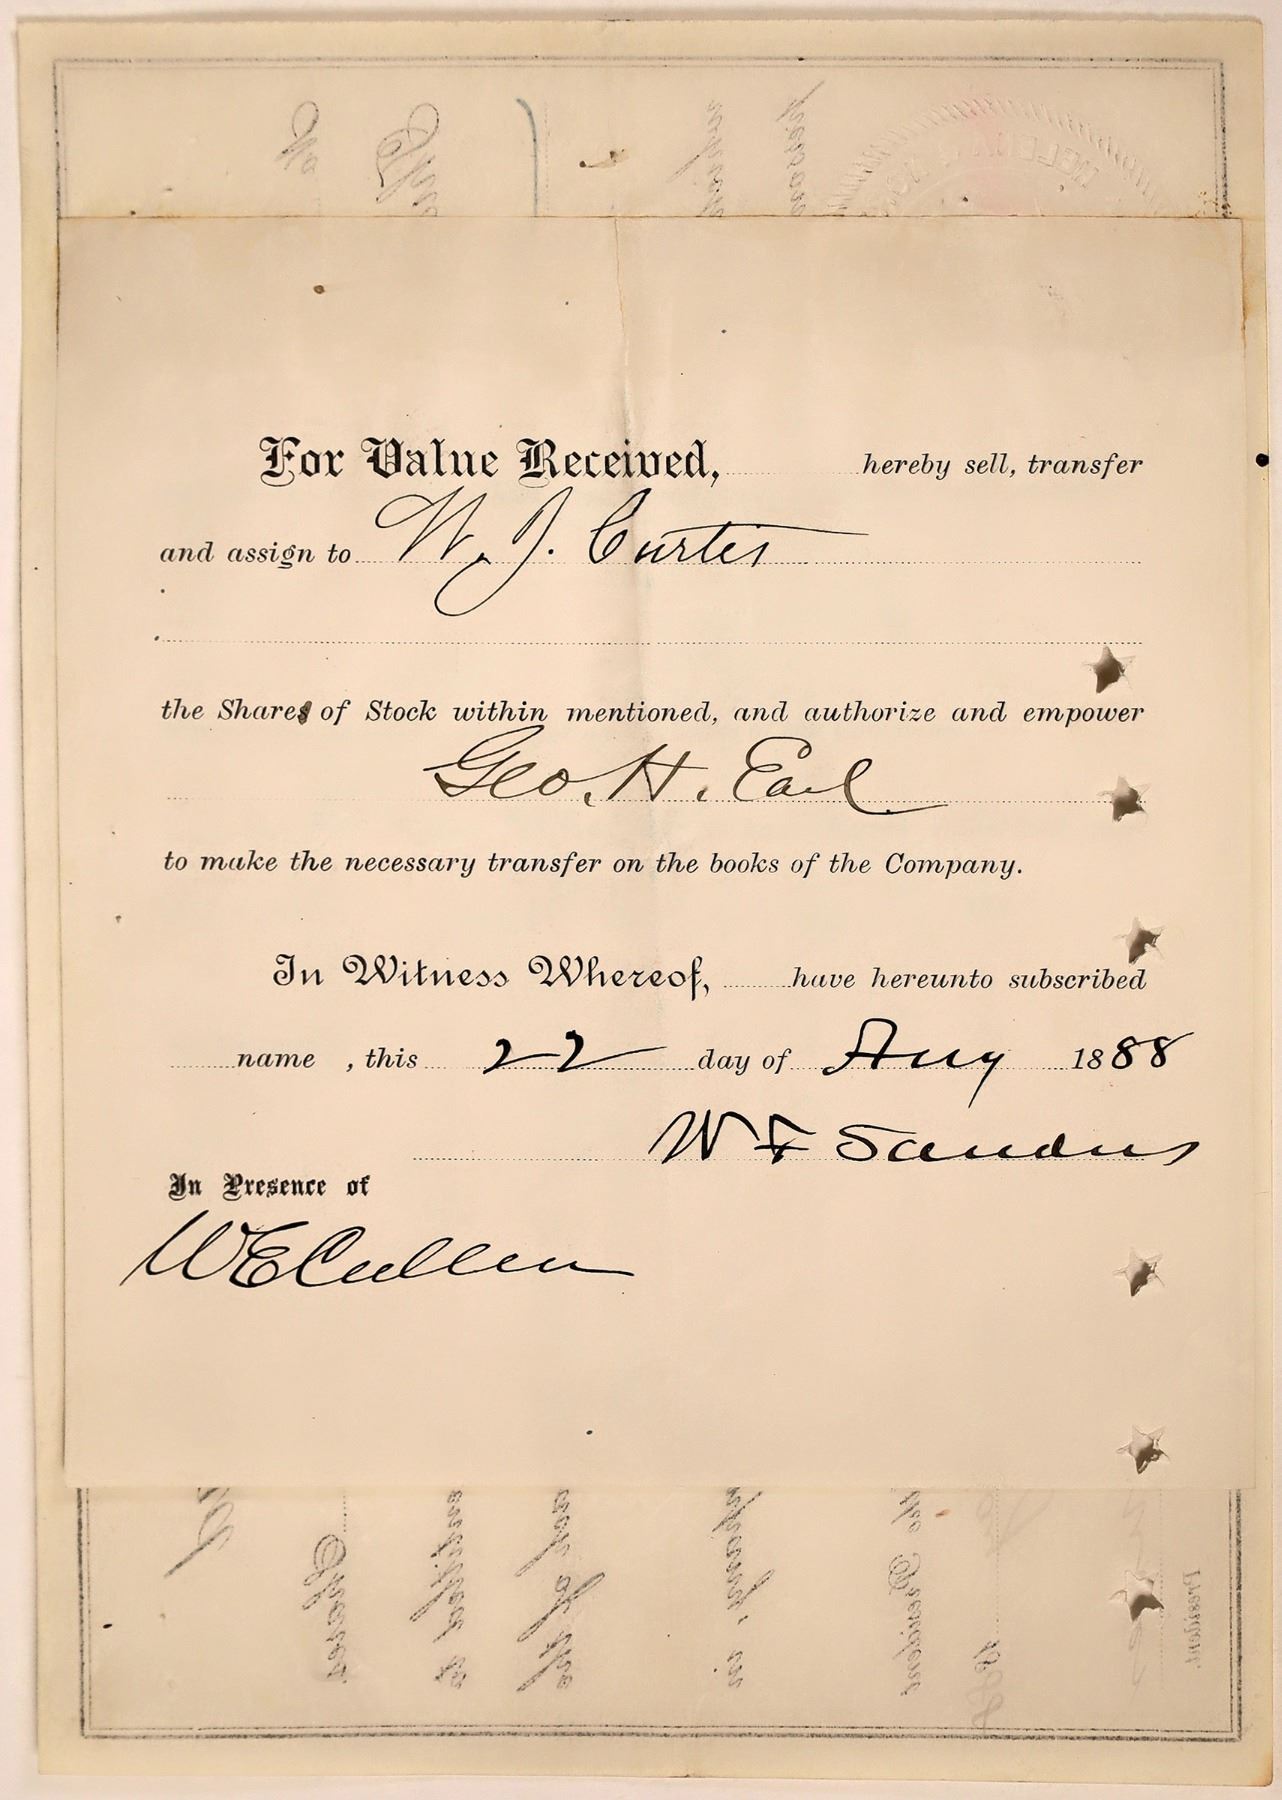 For Value Received, hereby sell, transfer
and assign to W. J. Curtis
the Shares of Stock within mentioned, and authorize and empower
Geo. H. Earl
to make the necessary transfer on the books of the Company.
In Witness Whereof, have hereunto subscribed
name , this 22 day of Aug 1888
W F Sanders
In Presence of
W E Cullen
President.